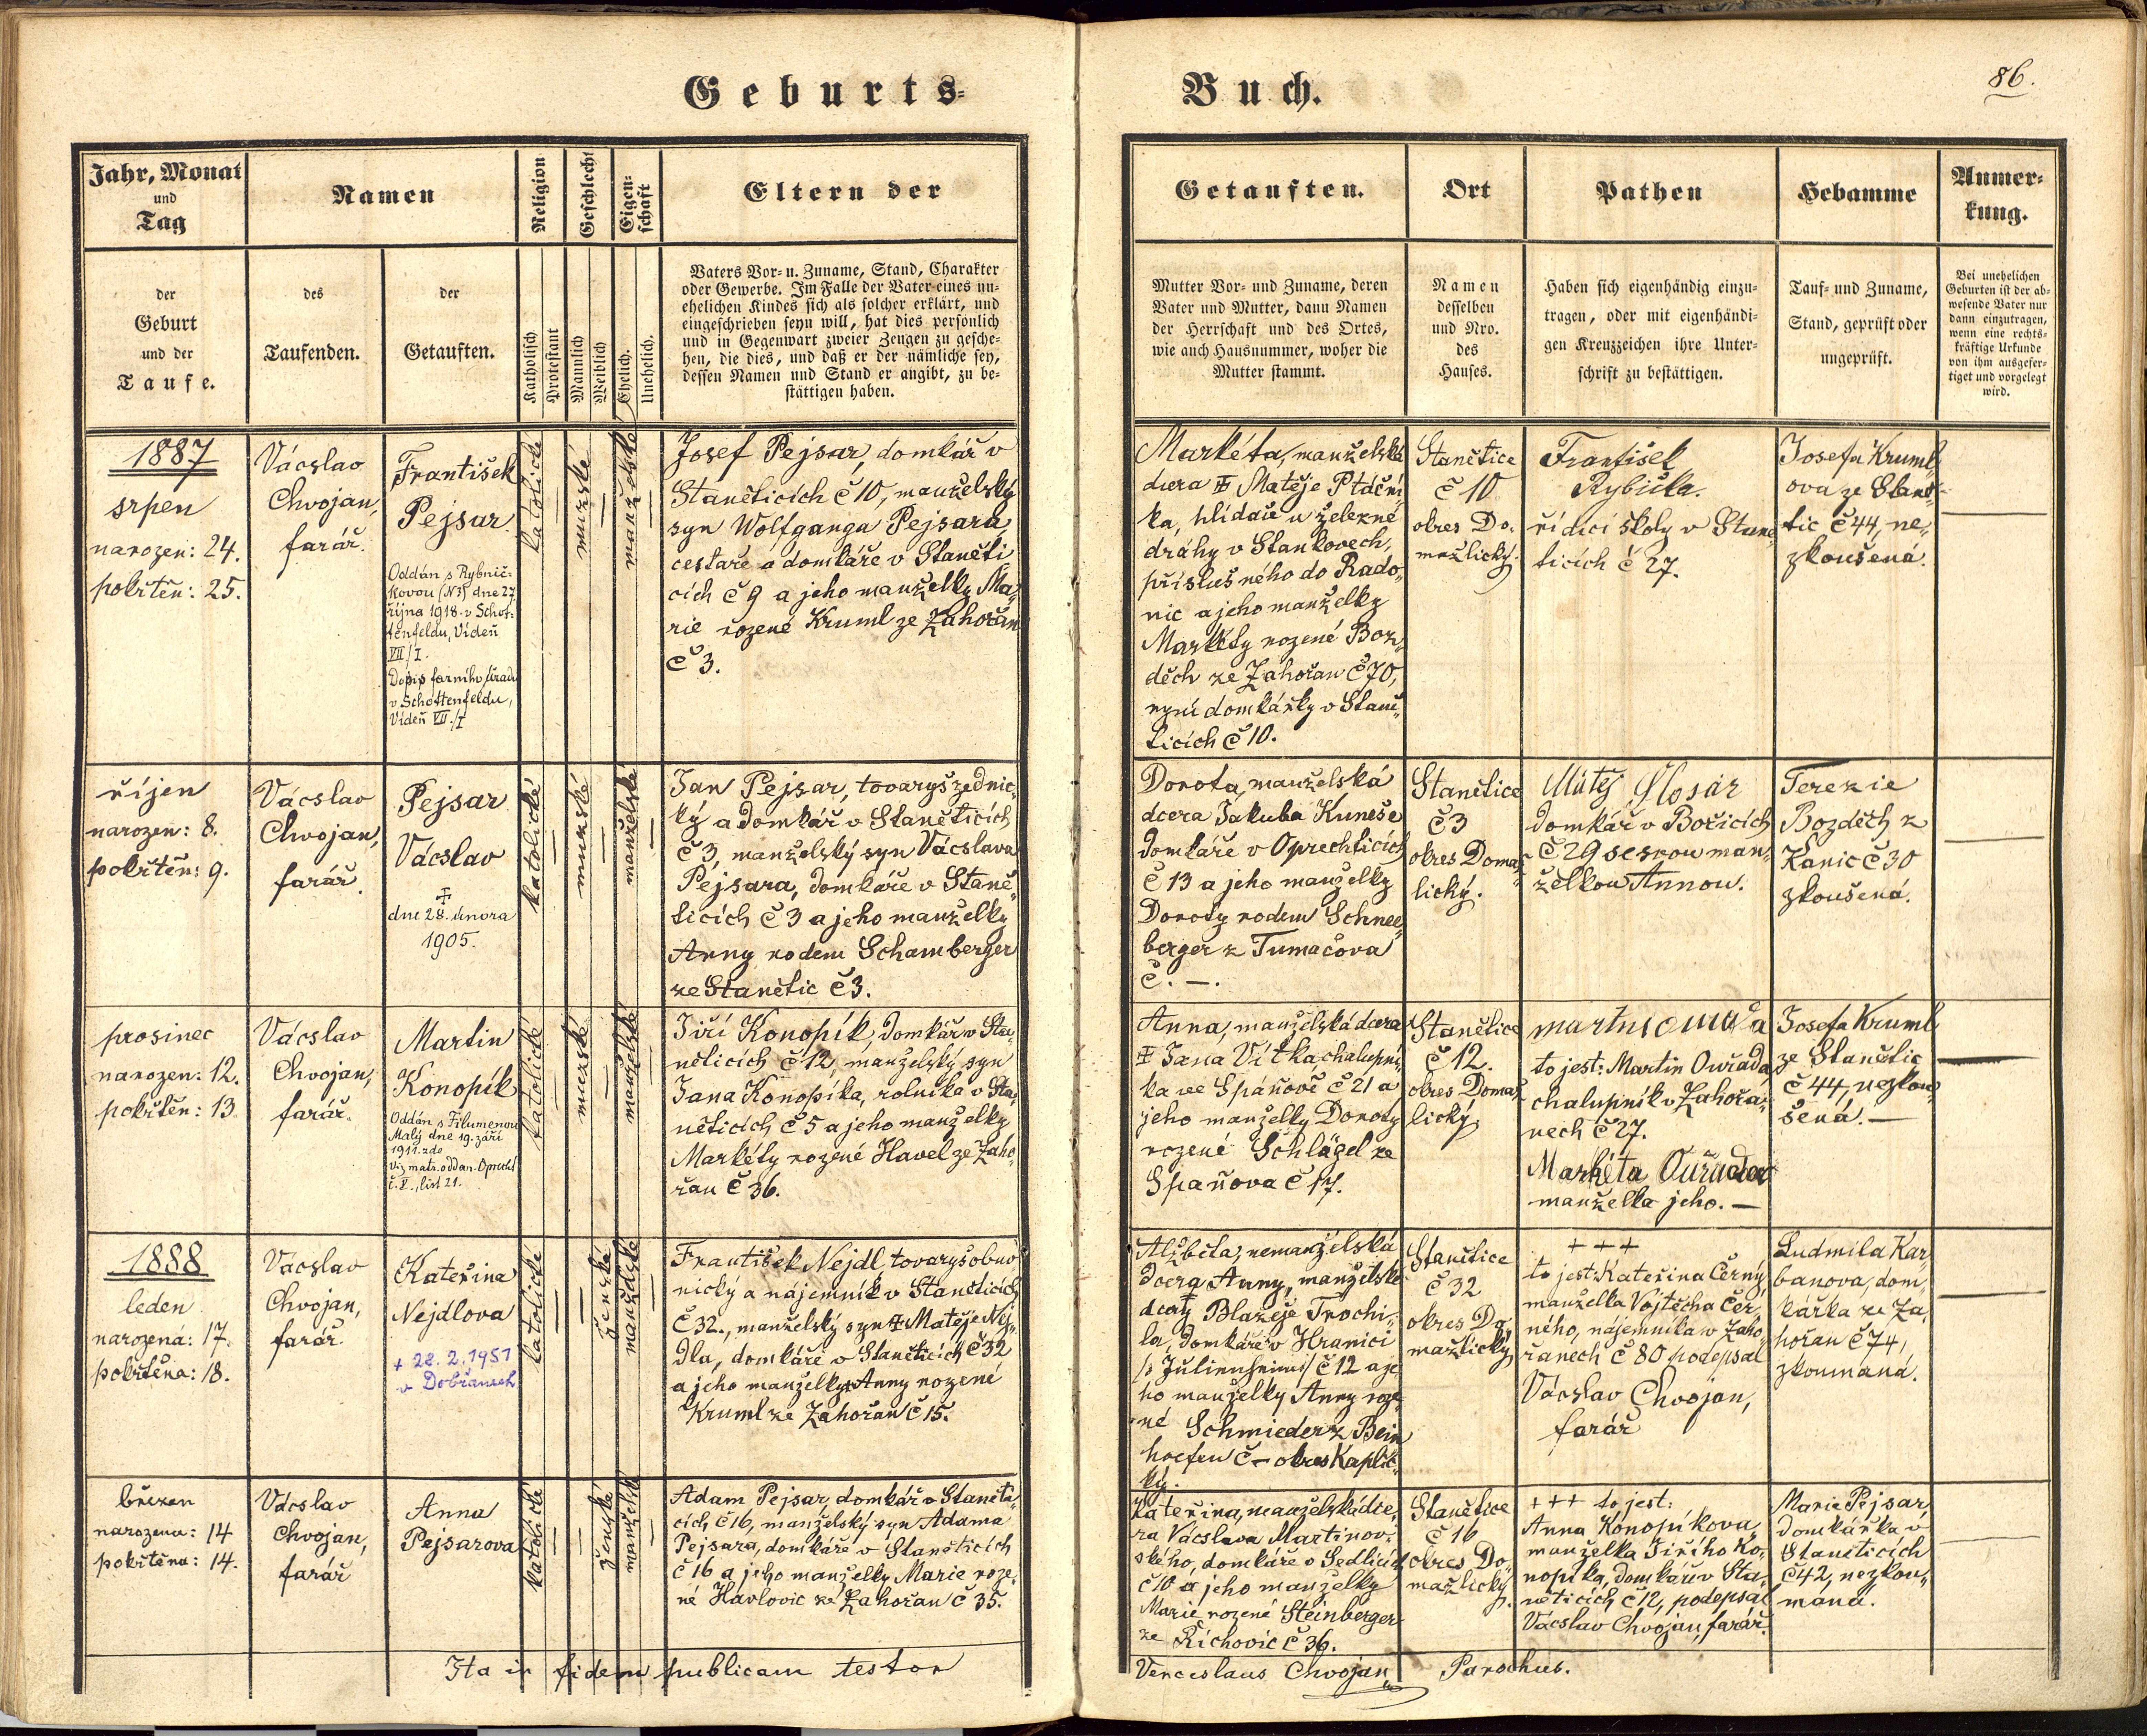 Geburts-
Buch.
86.
Jahr, Monat
und
Tag
Namen
Religion
Geschlecht
Eigen-
schaft
Eltern der
Getauften.
Ort
Pathen
Hebamme
Anmer-
kung.
der
Geburt
und der
Taufe.
des
Taufenden.
der
Getauften.
Katholisch
Protestant
Männlich
Weiblich
Ehelich.
Unehelich.
Vaters Vor- u. Zuname, Stand, Charakter
oder Gewerbe. Im Falle der Vater eines un-
ehelichen Kindes sich als solcher erklärt, und
eingeschrieben seyn will, hat dies persönlich
und in Gegenwart zweier Zeugen zu gesche-
hen, die dies, und daß er der nämliche sey,
dessen Namen und Stand er angibt, zu be-
stättigen haben.
Mutter Vor- und Zuname, deren
Vater und Mutter, dann Namen
der Herrschaft und des Ortes,
wie auch Hausnummer, woher die
Mutter stammt.
Namen
desselben
und Nro.
des
Hauses.
Haben sich eigenhändig einzu-
tragen, oder mit eigenhändi-
gen Kreuzzeichen ihre Unter-
schrift zu bestättigen.
Tauf- und Zuname,
Stand, geprüft oder
ungeprüft.
Bei unehelichen
Geburten ist der ab-
wesende Vater nur
dann einzutragen,
wenn eine rechts-
kräftige Urkunde
von ihm ausgefer-
tiget und vorgelegt
wird.
1887
srpen
narozen: 24.
pokřtěn: 25.
Václav
Chvojan,
farář.
František
Pejsar
Oddán s Rybnič-
kovou (N3) dne 27
října 1918 v Schot-
tenfeldu, Vídeň
VII/I.
Dopis farního úřadu
v Schottenfeldu,
Vídeň VII./I
katolické
mužské
manželské
Josef Pejsar, domkář v
Staněticích č 10, manželský
syn Wolfganga Pejsara
cestaře a domkáře v Staněti
cích č 9 a jeho manželky Ma-
rie rozené Kruml ze Zahořan
č 3.
Markéta, manželská
dcera ‡ Matěje Ptáční
ka, hlídače u železné
dráhy v Stankovech,
příslušného do Rado-
nic a jeho manželky
Markéty rozené Boz-
děch ze Zahořan č 70,
nyní domkářky v Staně-
ticích č 10.
Stanětice
č 10
okres Do-
mažlický.
František
Rybička.
řídící školy v Stane-
ticích č 27.
Josefa Kruml-
ova ze Staně-
tic č 44, ne-
zkoušená.
říjen
narozen: 8.
pokřtěn: 9.
Václav
Chvojan,
farář.
Pejsar
Václav
‡
dne 28. února
1905.
katolické
mužské
manželské
Jan Pejsar, tovaryš zednic-
ký a domkář v Staněticích
č 3, manželský syn Václava
Pejsara, domkáře v Staně-
ticích č 3 a jeho manželky
Anny rodem Schamberger
ze Stanětic č 3.
Dorota, manželská
dcera Jakuba Kuneše
domkáře v Oprechticích
č 13 a jeho manželky
Doroty rodem Schnee-
berger z Tumačova
č. —.
Stanětice
č 3
okres Domaž-
lický.
Matěj Šlosar
domkář v Bořicích
č 29 se svou man-
želkou Annou.
Terezie
Bozděch z
Kanic č 30
zkoušená.
prosinec
narozen: 12.
pokřtěn: 13
Václav
Chvojan,
farář.
Martin
Konopík
Oddán s Filumenou
Malý dne 19. září
1911. zde
viz matr. oddan. Oprecht
č. V., list 21.
katolické
mužské
manželské
Jiří Konopík, domkář v Sta-
něticích č 12, manželský syn
Jana Konopíka, rolníka v Sta-
něticích č 5 a jeho manželky
Markéty rozené Havel ze Zaho-
řan č 36.
Anna, manželská dcera
‡ Jana Vítka, chalupní-
ka ve Spáňově č 21 a
jeho manželky Doroty
rozené Schlägel ze
Spáňova č 17.
Stanětice
č 12.
okres Domaž-
lický.
to jest: Martin Ouřada,
chalupník v Zahořa-
nech č 27.
Markéta Ouřada
manželka jeho. —
Josefa Kruml
ze Stanětic
č 44, nezkou-
šená. —
1888
leden
narozená: 17.
pokřtěna: 18.
Václav
Chvojan,
farář.
Kateřina
Nejdlova
+ 22. 2. 1951
v Dobřanech
katolické
ženské
manželské
František Nejdl, tovaryš obuv
nický a nájemník v Staněticích
č 32., manželský syn ‡ Matěje Nej-
dla, domkáře v Staněticích č 32
a jeho manželky Anny rozené
Kruml ze Zahořan č 15.
Alžběta, nemanželská
dcera Anny, manželské
dcery Blažeje Trochi-
la, domkáře v Hranici
/: Julienheim :/ č 12 a je
ho manželky Anny roze-
né Schmieder z Bein
hoefen č — okres Kaplic-
ký.
Stanětice
č 32
okres Do-
mažlický
+ + +
to jest: Kateřina Černý,
manželka Vojtěcha Čer-
ného, nájemníka v Zaho-
řanech č 80 podepsal
Václav Chvojan,
farář
Ludmila Kar-
banova, dom-
kářka ze Za-
hořan č 74,
zkoumaná.
březen
narozena: 14
pokřtěna: 14.
Václav
Chvojan,
farář
Anna
Pejsarova
katolické
ženské
manželské
Adam Pejsar, domkář v Staněti-
cích č 16, manželský syn Adama
Pejsara, domkáře v Staněticích
č 16 a jeho manželky Marie roze-
né Havlovic ze Zahořan č 35.
Kateřina, manželská dce-
ra Václava Martinov-
ského, domkáře v Sedlicích
č 10 a jeho manželky
Marie rozené Steinberger
ze Řichovic č 36.
Stanětice
č 16
okres Do-
mažlický.
+++ to jest:
Anna Konopíkova,
manželka Jiřího Ko-
nopíka, domkáře v Sta-
něticích č 12, podepsal
Václav Chvojan, farář.
Marie Pejsar,
domkářka v
Staněticích
č 42, nezkou-
maná.
Ita in fidem publicam testor
Venceslaus Chvojan,
Parochus.